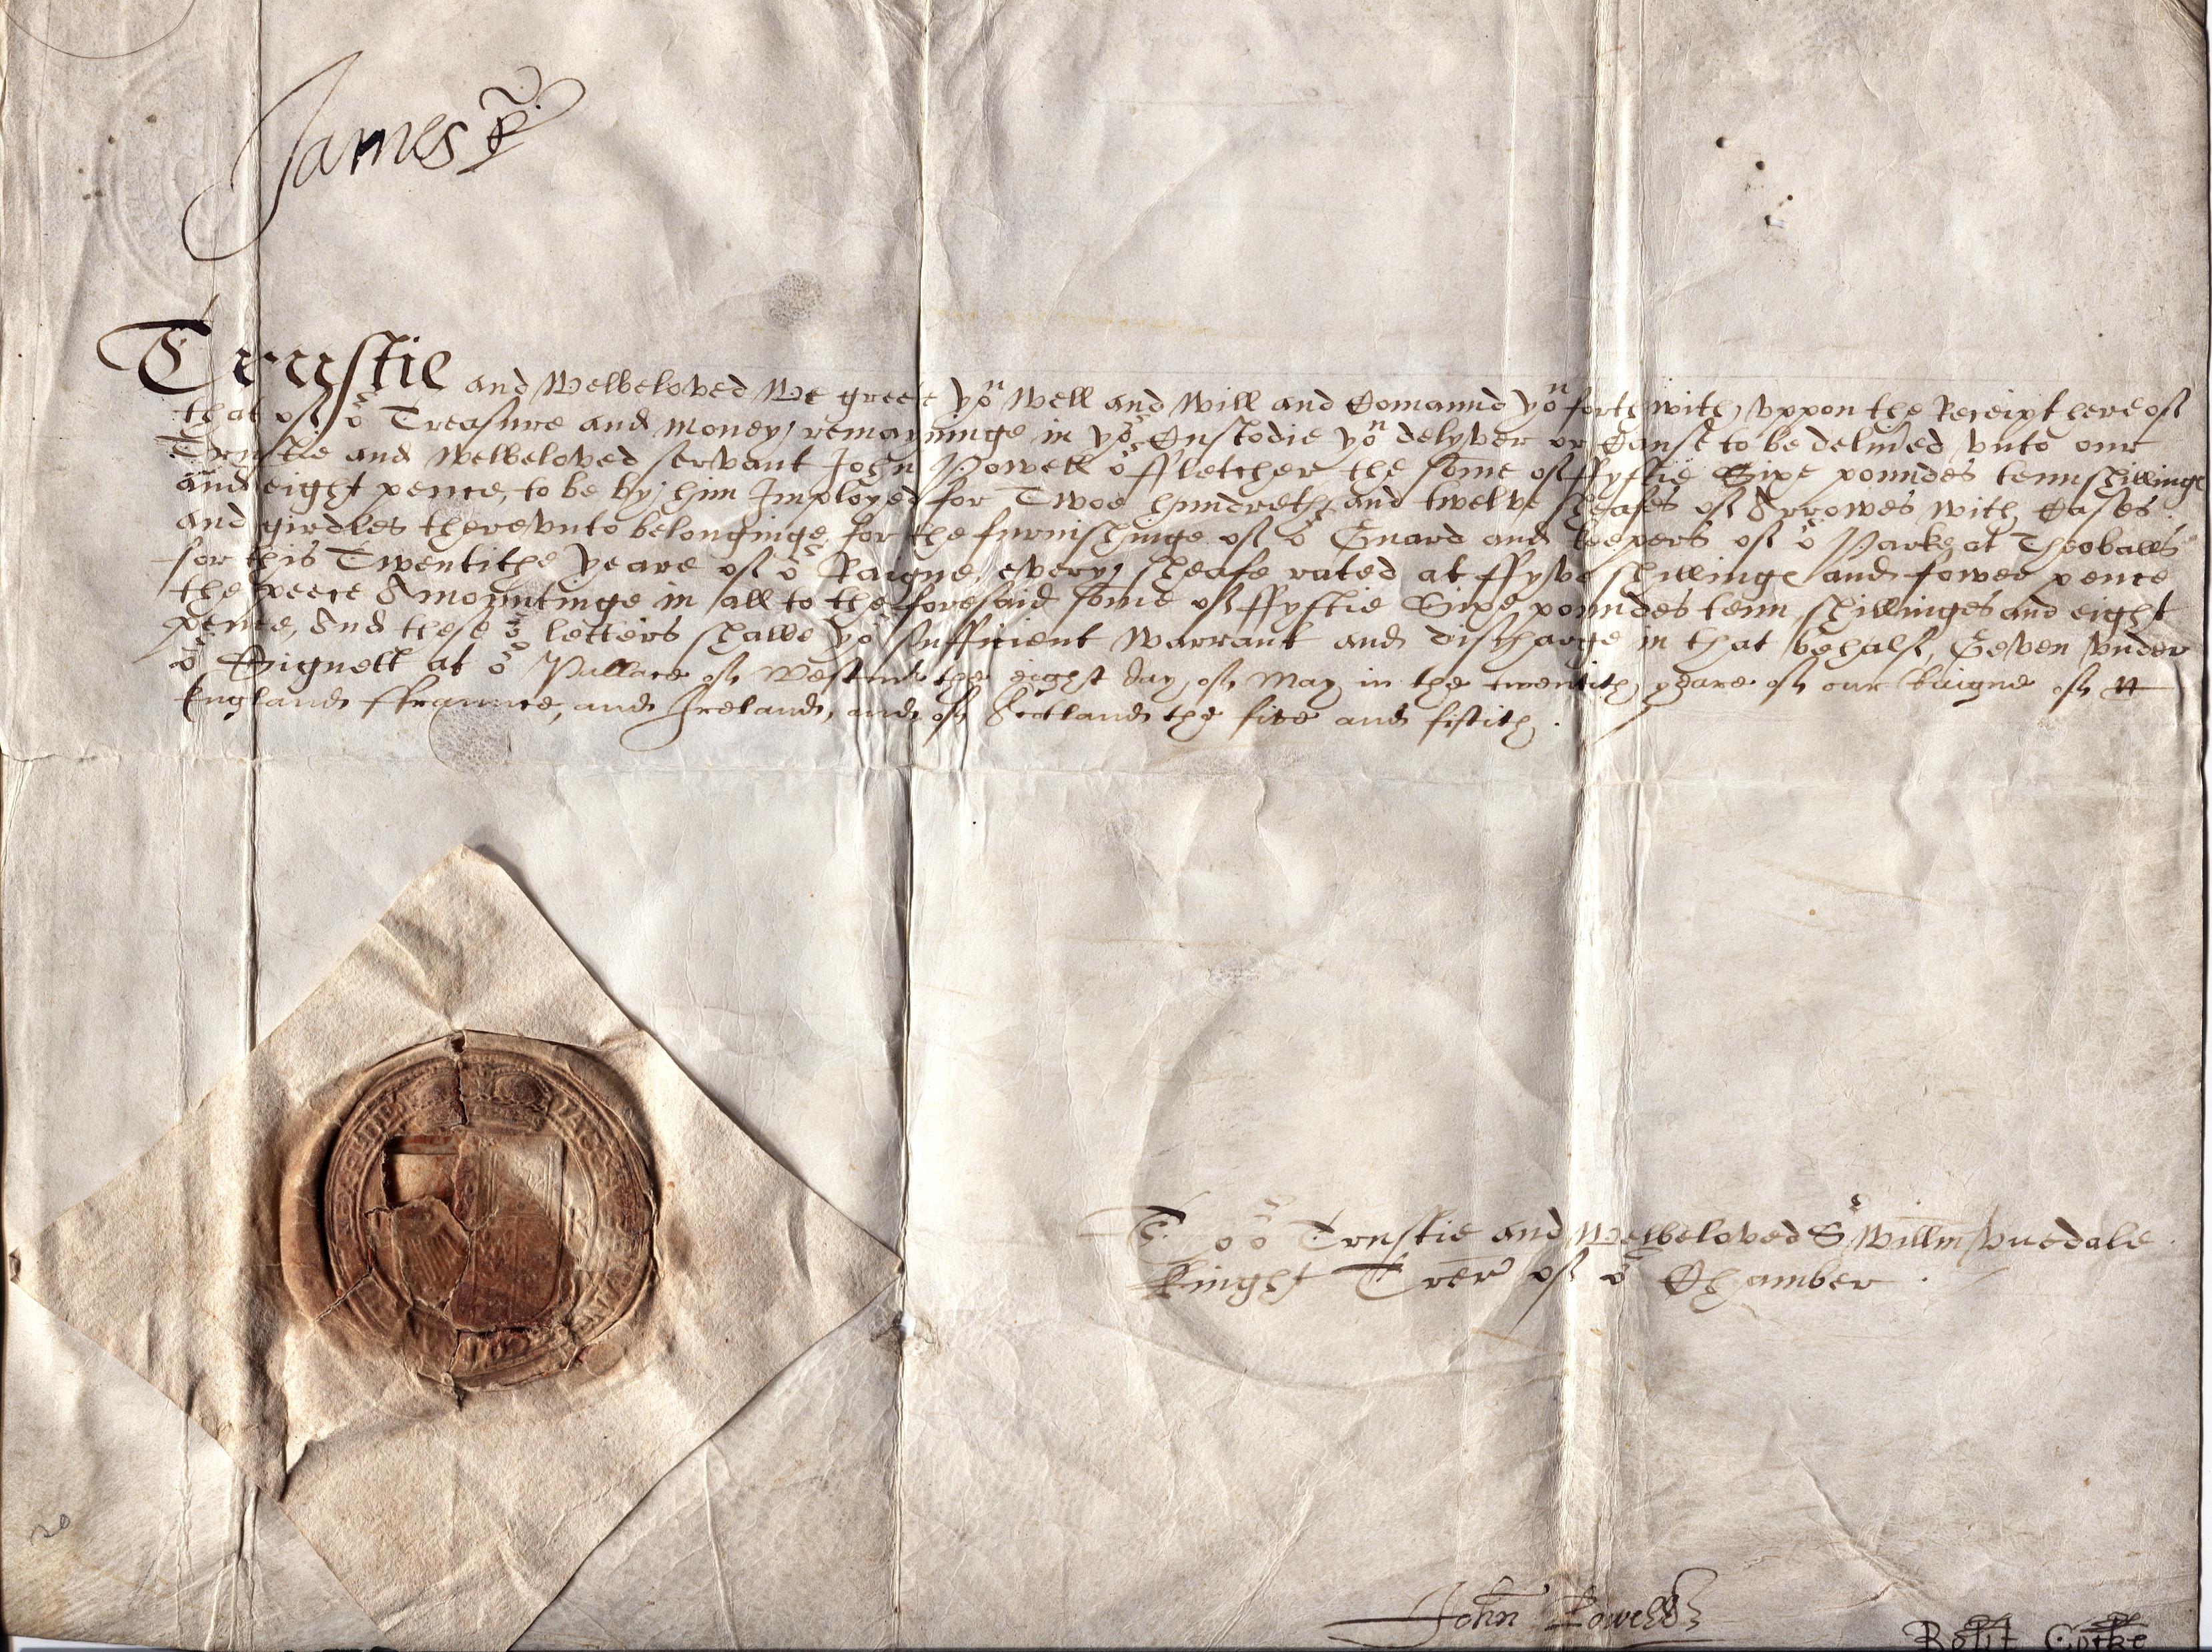 James R
Trustie and Welbeloved We greete yoᵘ well and will and Comaund yoᵘ forthwith vppon the Receipt hereof
that of oʳ Treasure and money remayninge in yoʳ Custodie yoᵘ delyver or Cause to be deliůed vnto our
Trustie and welbeloved servant John Powell oʳ ffletcher the some of ffyftie Sixe poundes tenn shillings
and eight pence, to be by him Imployed for Twoe hundreth and twelve sheafes of Arrowes with Cases
and girdles therevnto belonginge, for the furnishinge of oʳ Guard and keepers of oʳ Parke at Theoballs
for this Twentithe yeare of oʳ Raigne, every sheafe rated at ffyve shillinge and fower pence
the peece Amountinge in all to the foresaid some of ffyftie Sixe poundes tenn shillinges and eight
pence, And these oʳ letters shalbe yoʳ sufficient warrant and discharge in that behalf, Geven vnder
oʳ Signett at oʳ Pallace of Westmʳ the eight day of May in the twentith yeare of our Raigne of
England ffraunce, and Ireland, and of Scotland the five and fiftith.
To oʳ Trustie and Welbeloved Sʳ Willm Vuedale
Knight Trer of oʳ Chamber
John Powell
20